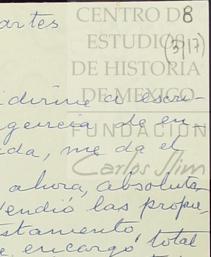 8
CENTRO DE
ESTUDIOS
(3/17)
DE HISTORIA
DE MÉXICO
FUNDACIÓN
Carlos Slim
artes
idirme a escri-
gencia de en-
da, me da el
ahora, absoluta
endió las propie,
stamento
e encargó total